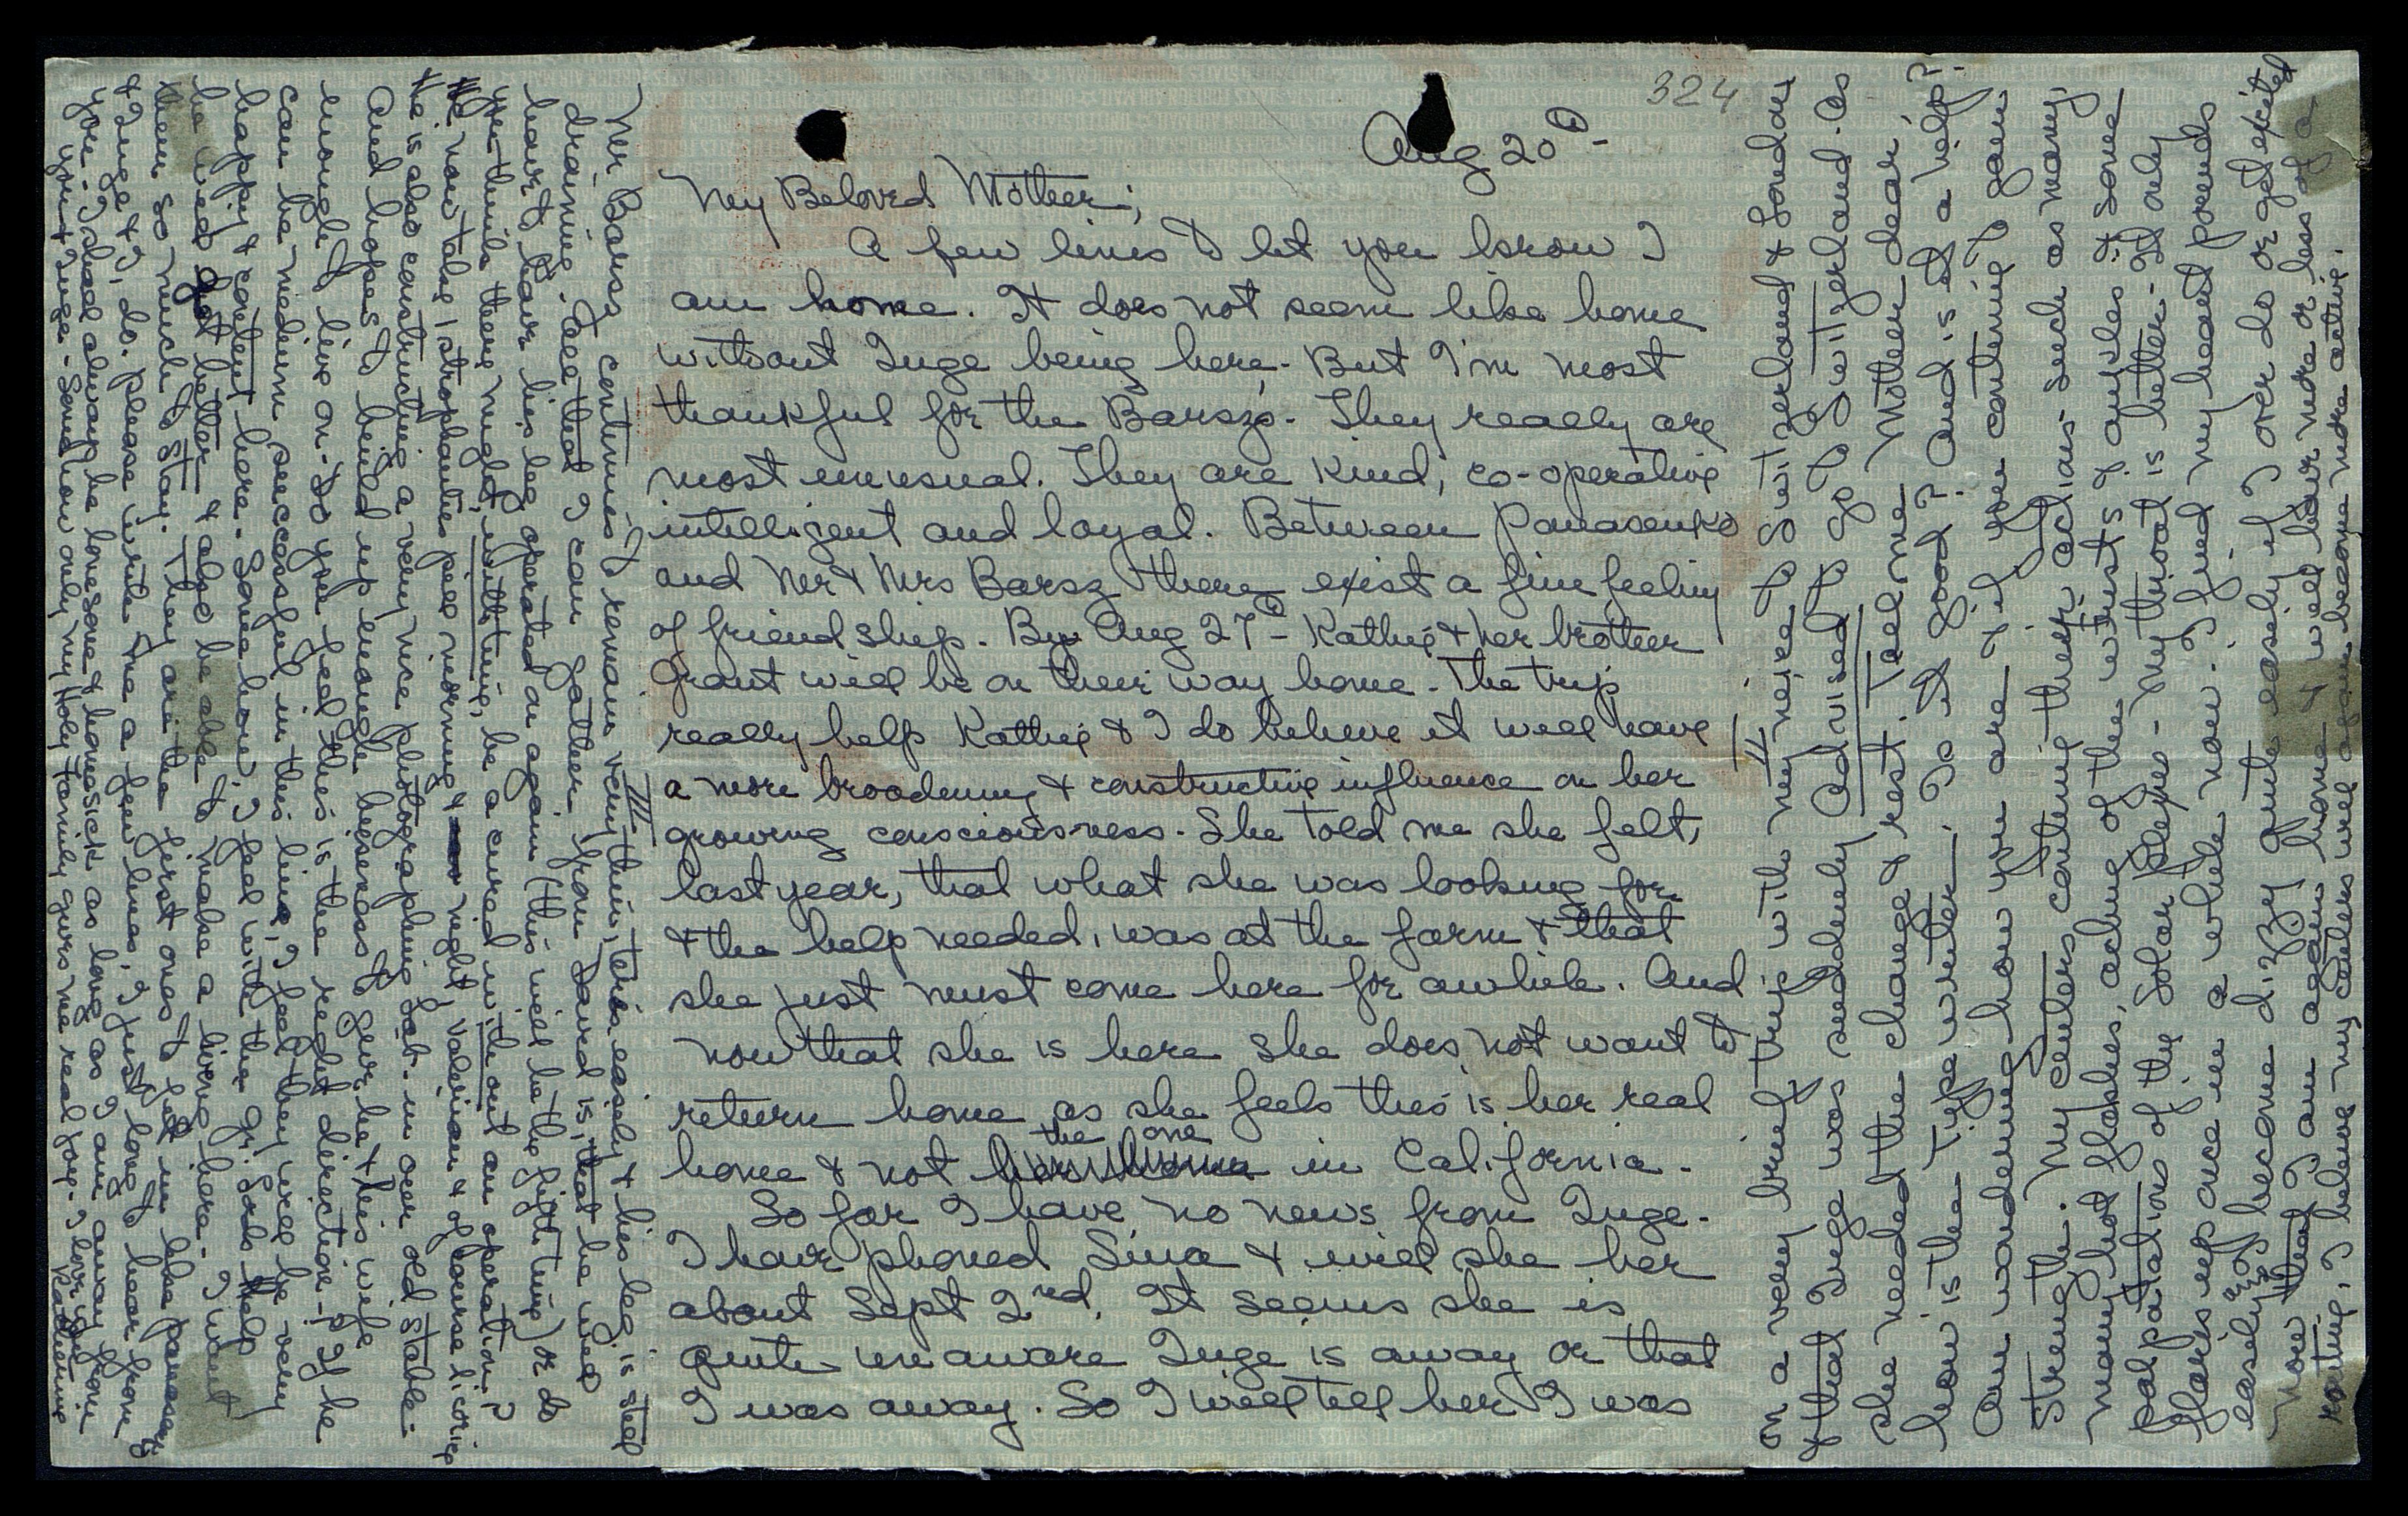 324
Aug 20th -
My Beloved Mother;
A few lines to let you know I
am home. It does not seem like home
without Inge being here. But I'm most
thankful for the Barszs. They really are
most unusual. They are kind, co-operative
intelligent and loyal. Between Panasenko
and Mr & Mrs Barsz there exist a fine feeling
of friendship. By Aug 27th - Kathie & her brother
Grant will be on their way home. The trip
really help Kathie & I do believe it will have
a more broadening & constructive influence on her
growing consciousness. She told me she felt,
last year, that what she was looking for
& the help needed, was at the farm & that
she just must come here for awhile. And
now that she is here she does not want to
return home as she feels this is her real
home & not the one in California.
So far I have no news from Inge.
I have phoned Sina & will she her
about Sept 2nd. It seems she is
quite unaware Inge is away or that
I was away. So I will tell her I was
II
on a very brief trip with my neice to Switzerland & London
& that Inge was suddenly advised to go to Switzerland. As
she needed the change & rest. Tell me Mother dear,
how is the Type writer. Is it good? And is it a help?
Am wondering how you are & if you continue to gain
strength. My centers continue their actions - such as many,
many hot flashes, aching of the wrists & ankles & some
palpatations of the Solar Plexus - My throat is better - It only
flares up once in a while now. I find my heart pounds
easily & I become dizzy quite easily if I over do or get excited
Now that I am again home & will have more or less of a
routine, I believe my centers will again become more active.
III
Mr Barsz continues to remain very thin, tires easily & his leg is still
draining. All that I can gather from David is, that he will
have to have his leg operated on again (this will be the fifth time) or do
you think there might, with time, be a cured with out an operation?
He now takes 1 strophantis pill morning & night, Valerian & of course licorice
He is also constructing a very nice photographing lab. in our old stable -
And hopes to build up enough business to give he & his wife
enough to live on - Do you feel this is the right direction - If he
can be medium successful in this line, I feel they will be very
happy & content here. Some how, I feel with the gr. gods help
he will get better & also be able to make a living here - I want
them so much to stay. They are the first ones to fit in like Panasenko
& Inge & I, do. Please write me a few lines, I just long to hear from
you - I shall always be lonesome & homesick as long as I am away from
you & Inge - Somehow only my Holy Family gives me real joy - I love you
Katherine